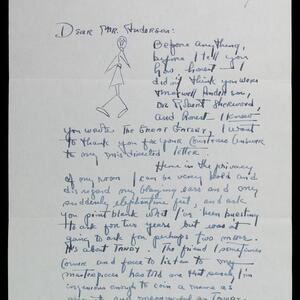 Dear Mr. Anderson:
Before anything,
before I tell you
how honest I
didn't think you were
Maxwell Anderson,
or Robert Sherwood
and honest I know
you wrote The Great Gatsby, I want
to thank you for your courteous answer
to my misdirected letter.
Here in the privacy
of my room I can be very bold and
disregard my blazing ears and my
suddenly elephantine feet, and ask
you point blank what I've been bursting
to ask for years but was at
going to ask for perhaps two more.
It's about Tawny. The friend I sometimes
corner and force to listen to my
masterpieces has told me that nearly I'm
ingenious enough to coin a name as